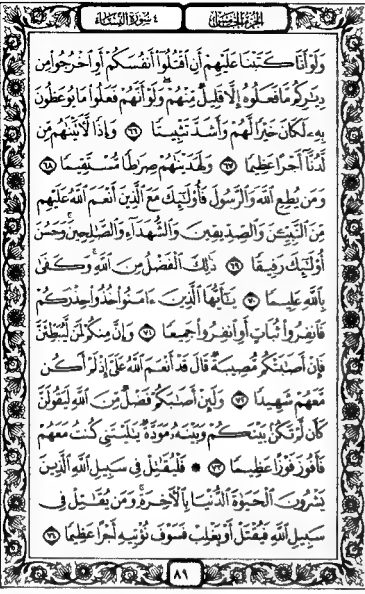 الجزء الخامس ٤ سورة النساء
وَلَوْ أَنَّا كَتَبْنَا عَلَيْهِمْ أَنِ اقْتُلُوا أَنفُسَكُمْ أَوِ اخْرُجُوا مِن
دِيَارِكُم مَّا فَعَلُوهُ إِلَّا قَلِيلٌ مِّنْهُمْ وَلَوْ أَنَّهُمْ فَعَلُوا مَا يُوعَظُونَ
بِهِ لَكَانَ خَيْرًا لَّهُمْ وَأَشَدَّ تَثْبِيتًا ٦٦ وَإِذًا لَّآتَيْنَاهُم مِّن
لَّدُنَّا أَجْرًا عَظِيمًا ٦٧ وَلَهَدَيْنَاهُمْ صِرَاطًا مُّسْتَقِيمًا ٦٨
وَمَن يُطِعِ اللَّهَ وَالرَّسُولَ فَأُولَٰئِكَ مَعَ الَّذِينَ أَنْعَمَ اللَّهُ عَلَيْهِم
مِّنَ النَّبِيِّينَ وَالصِّدِّيقِينَ وَالشُّهَدَاءِ وَالصَّالِحِينَ وَحَسُنَ
أُولَٰئِكَ رَفِيقًا ٦٩ ذَٰلِكَ الْفَضْلُ مِنَ اللَّهِ وَكَفَىٰ
بِاللَّهِ عَلِيمًا ٧٠ يَا أَيُّهَا الَّذِينَ ءَامَنُوا خُذُوا حِذْرَكُمْ
فَانفِرُوا ثُبَاتٍ أَوِ انفِرُوا جَمِيعًا ٧١ وَإِنَّ مِنكُمْ لَمَن لَّيُبَطِّئَنَّ
فَإِنْ أَصَابَتْكُم مُّصِيبَةٌ قَالَ قَدْ أَنْعَمَ اللَّهُ عَلَيَّ إِذْ لَمْ أَكُن
مَّعَهُمْ شَهِيدًا ٧٢ وَلَئِنْ أَصَابَكُمْ فَضْلٌ مِّنَ اللَّهِ لَيَقُولَنَّ
كَأَن لَّمْ تَكُن بَيْنَكُمْ وَبَيْنَهُ مَوَدَّةٌ يَا لَيْتَنِي كُنتُ مَعَهُمْ
فَأَفُوزَ فَوْزًا عَظِيمًا ٧٣ ۞ فَلْيُقَاتِلْ فِي سَبِيلِ اللَّهِ الَّذِينَ
يَشْرُونَ الْحَيَوٰةَ الدُّنْيَا بِالْآخِرَةِ وَمَن يُقَاتِلْ فِي
سَبِيلِ اللَّهِ فَيُقْتَلْ أَوْ يَغْلِبْ فَسَوْفَ نُؤْتِيهِ أَجْرًا عَظِيمًا ٧٤
٨٩